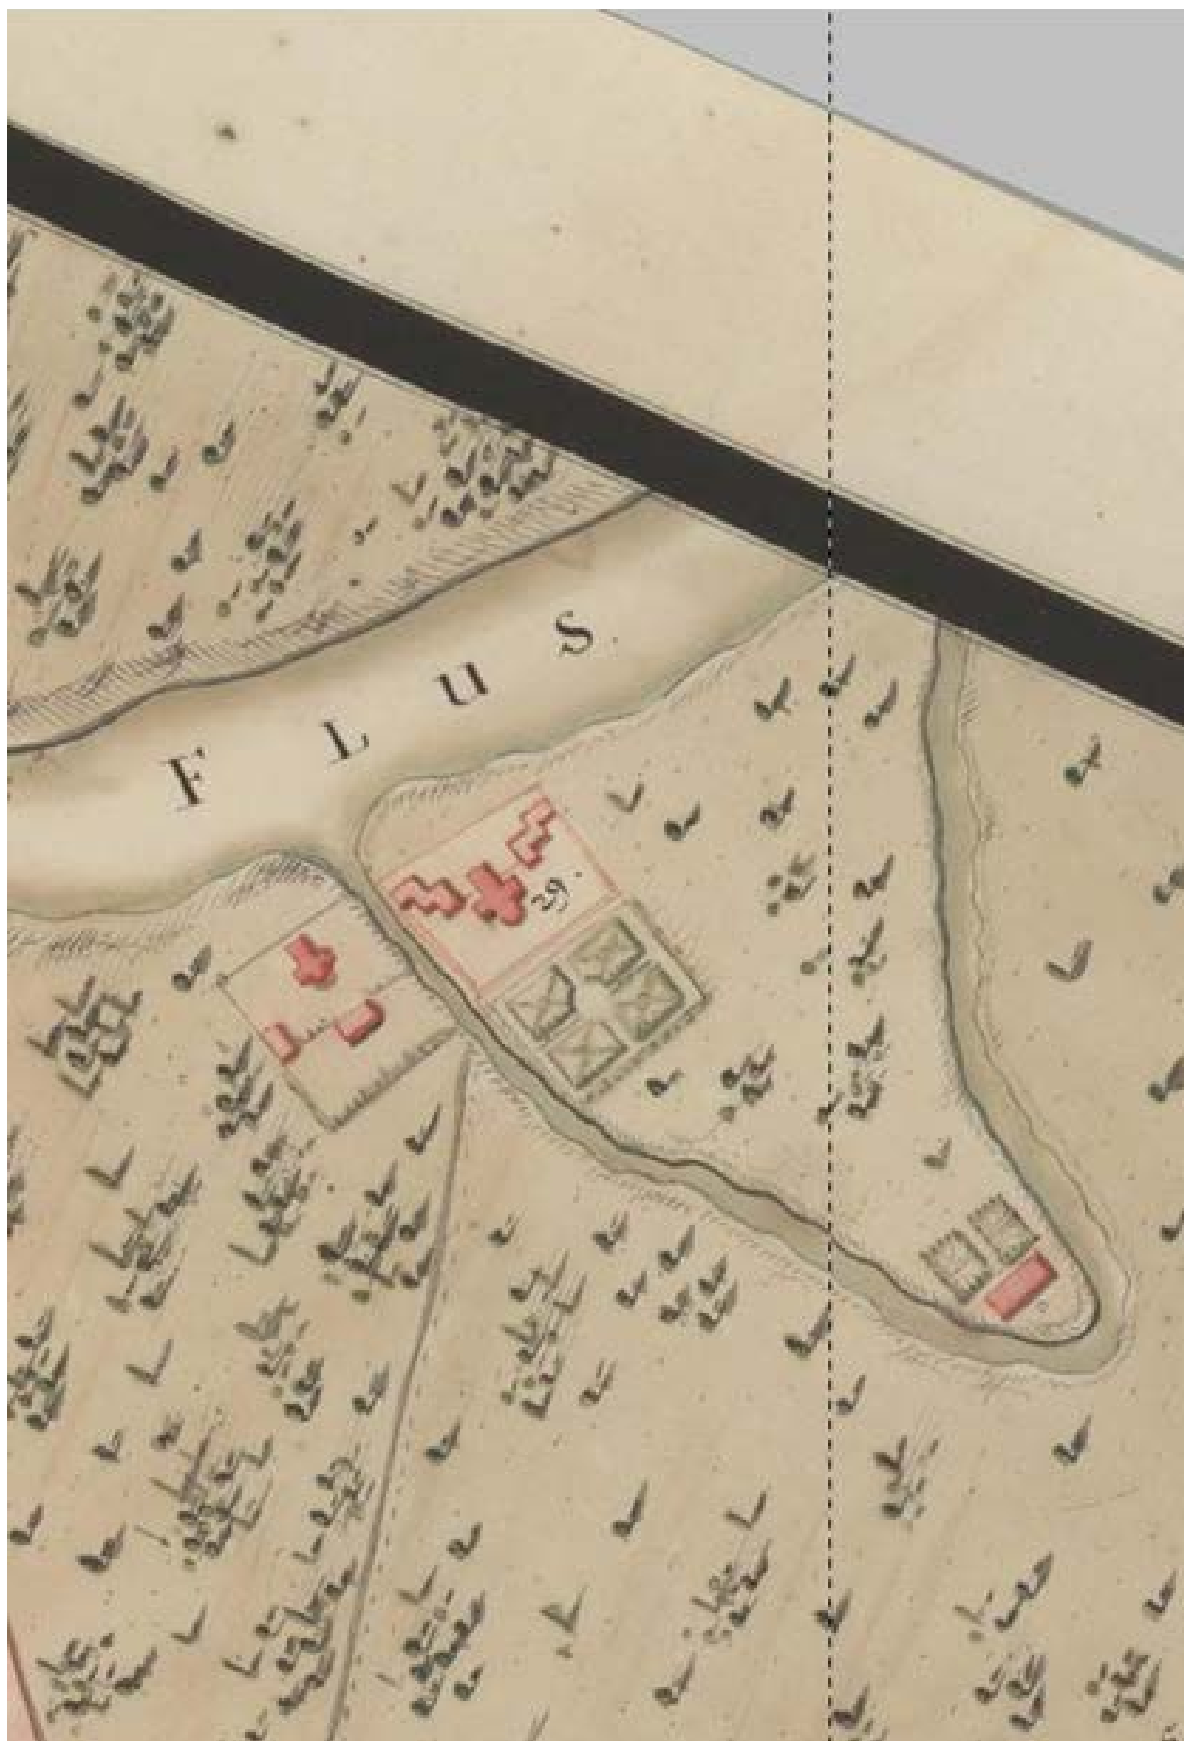 F L U S.
29.